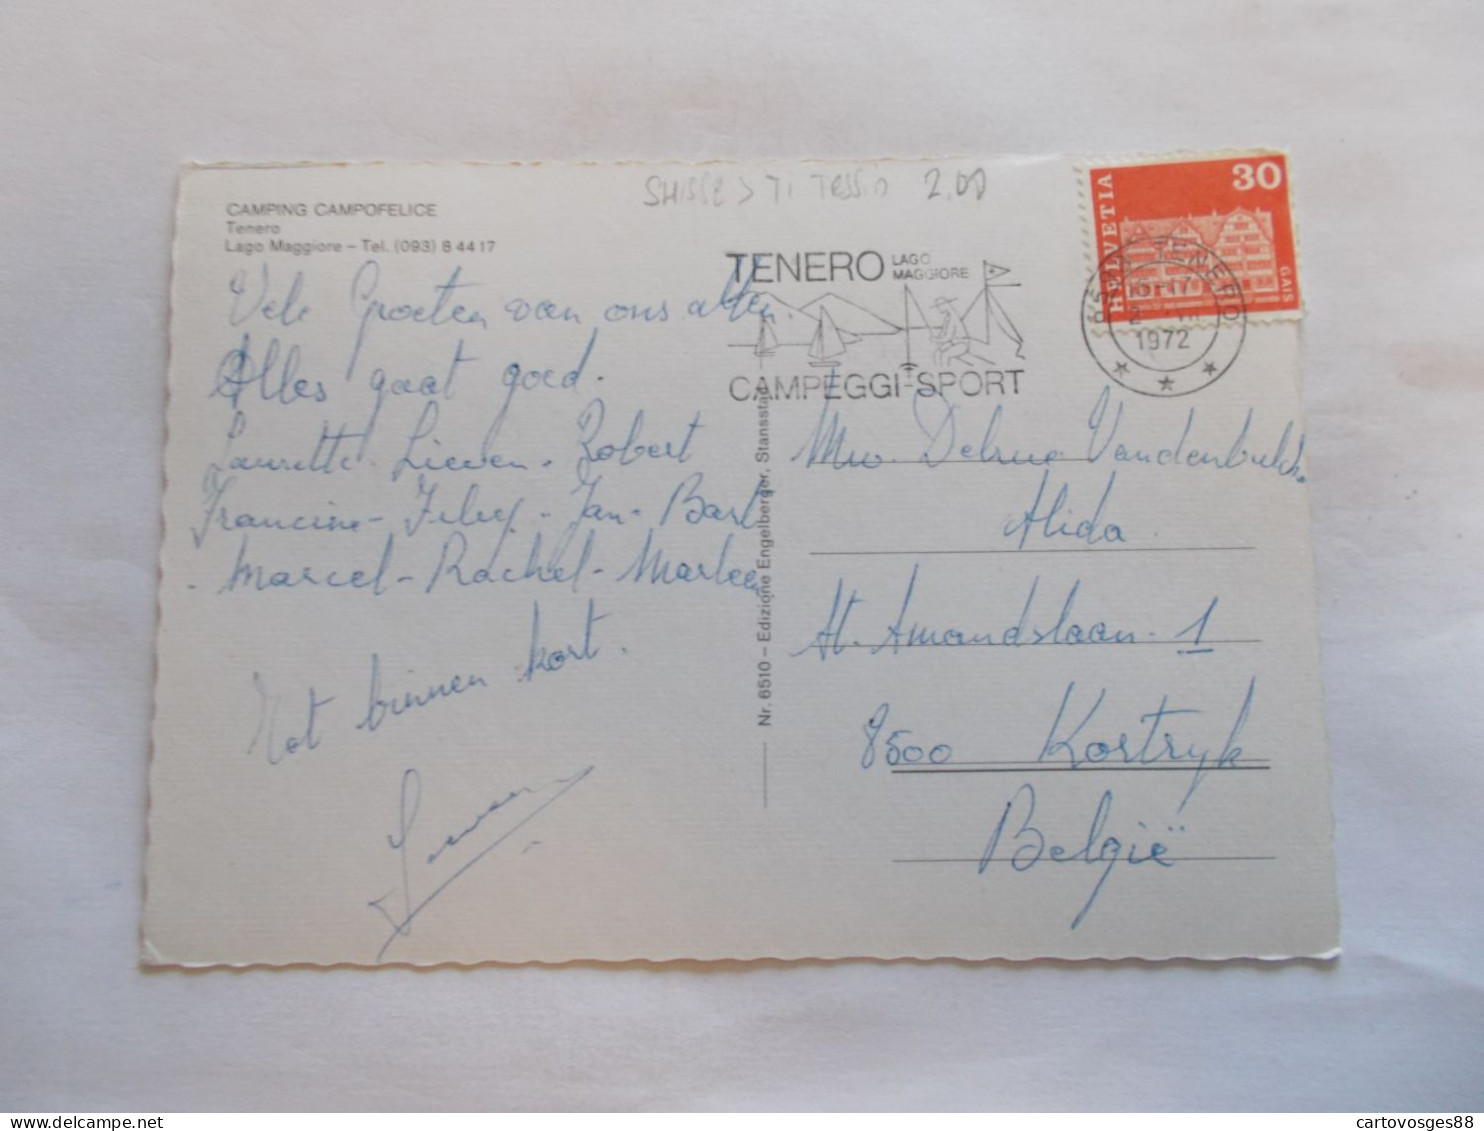 SUISSE > TI TESSIN 2,00
CAMPING CAMPOFELICE
Tenero
Lago Maggiore – Tel. (093) 8 44 17
TENERO LAGO MAGGIORE
CAMPEGGI-SPORT
HELVETIA 30
GAIS
TENERO
1972
Vele Groeten van ons allen.
Alles gaat goed.
Laurette - Lieven - Robert
Francine - - Jan - Bart
- Marcel - Rachel - Marleen
Tot binnen kort.
Nr. 6510 – Edizione Engelberger, Stansstad
Mw. Delrue Vandenbulcke
Alida
St. Amandslaan 1
8500 Kortryk
België
cartovosges88